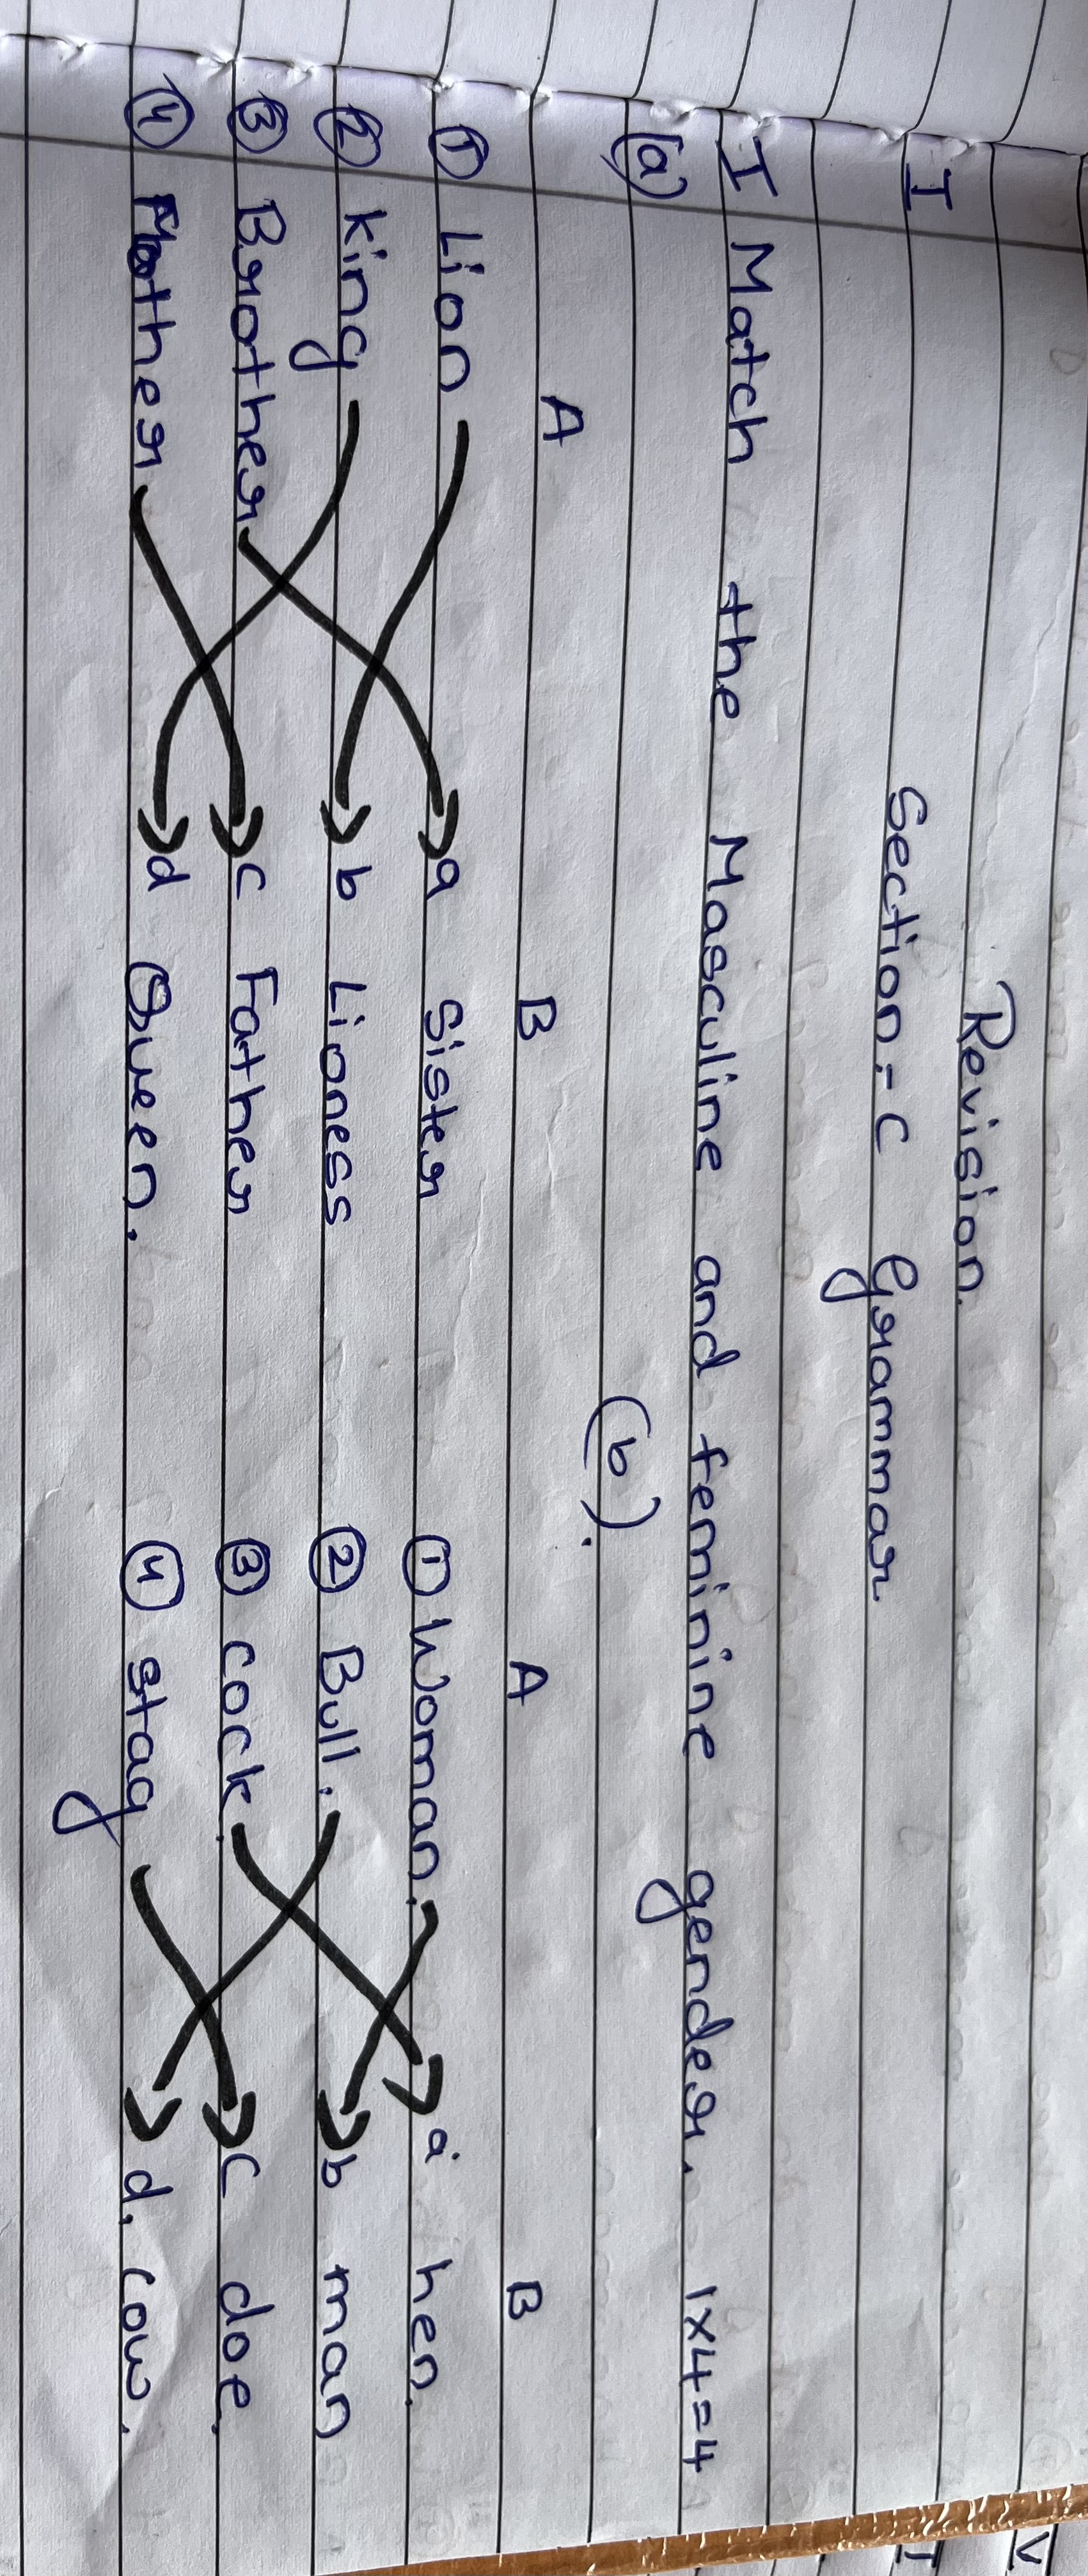 Revision.
I Section:- C Grammar
I Match the Masculine and feminine gender. 1×4=4
(a) (b).
A B A B
① Lion a Sister ① Woman. a. hen.
② king b Lioness ② Bull. b man
③ Brother c Father ③ cock. c doe.
④ Mother d Queen. ④ stag d. cow.